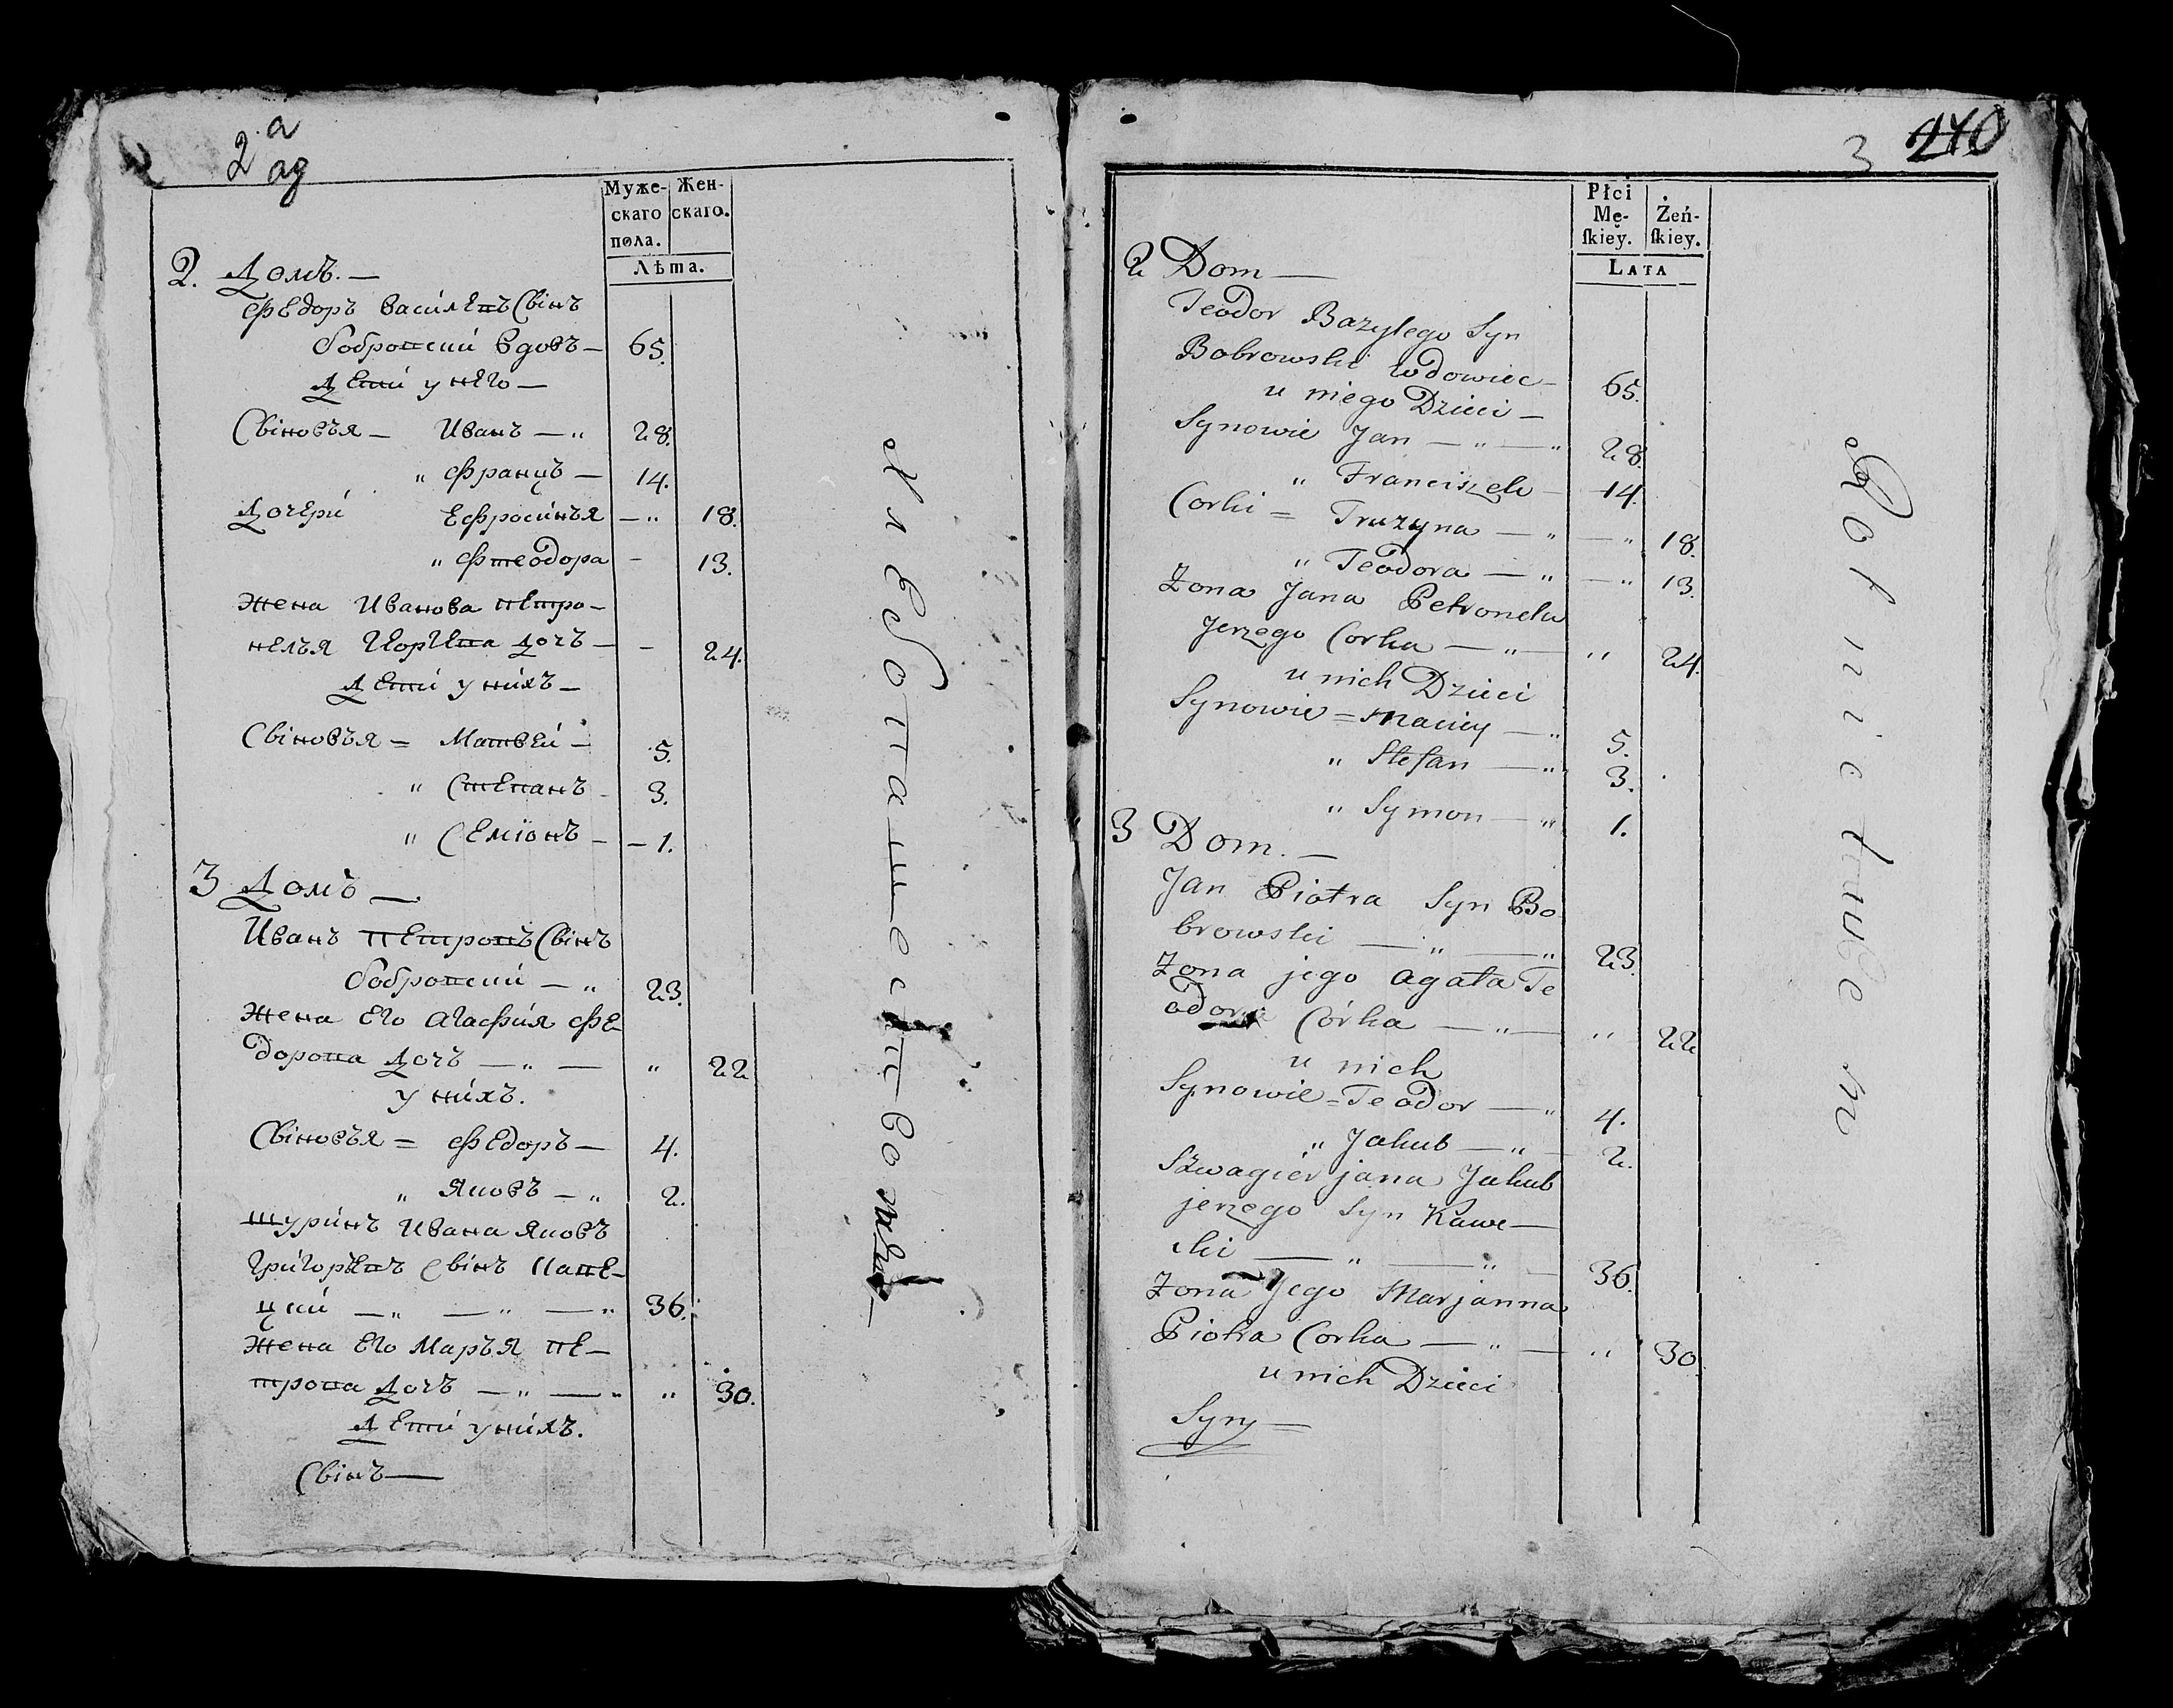 2 а
ад
Муже-
скаго
пола.
Жен-
скаго.
Лѣта.
2. Домъ. —
Федоръ Василевъ Свінъ
Бобровский вдовъ — 65.
Дети у него —
Свіновъя — Иванъ — „ 28.
„ Францъ — 14.
Дочери Ефросинъя — „ 18.
„ Фтеодора - 13.
Жена Иванова Петро-
нелъя Iеоргева дочъ — - 24.
Дети у нихъ —
Свіновъя = Матвей — 5.
„ Степанъ 3.
„ Семіонъ - - 1.
3 Домъ —
Иванъ Петровъ Свінъ
Бобровский — „ 23.
Жена его Агафия Фе-
дорова дочъ — „ — „ 22
у нихъ.
Свіновъя = Федоръ — 4.
„ Яковъ — „ 2.
Шуринъ Ивана Яковъ
Григорьевъ свінъ Каве-
цкий — „ — „ — „ 36.
Жена его Маръя Пе-
трова дочъ — „ — „ „ 30.
Дети у нихъ.
Свінъ —
Хлебопашеством
3 240
Płci
Mę-
ſkiey.
Żeń-
ſkiey.
LATA
2 Dom —
Teodor Bazylego Syn
Bobrowski wdowiec — 65.
u niego Dzieci —
Synowie Jan — „ — „ 28.
„ Franciszek — 14.
Corki = Fruzyna — „ — „ 18.
„ Teodora — „ — „ 13.
Zona Jana Petronela
Jerzego Corka — „ — „ 24.
u nich Dzieci
Synowie = Maciey — „ 5.
„ Stefan — „ 3.
„ Symon — „ 1.
3 Dom. —
Jan Piotra Syn Bo
browski — „ — „ 23.
Zona jego Agata Te
odora Córka — „ — „ 22
u nich
Synowie = Teodor — „ 4.
„ Jakub — „ 2.
Szwagier jana Jakub
jerzego Syn Kawe —
cki — „ — „ — 36.
Zona Jego Marjanna
Piotra Corka — „ — „ 30.
u nich Dzieci
Syn —
Rolnictwem